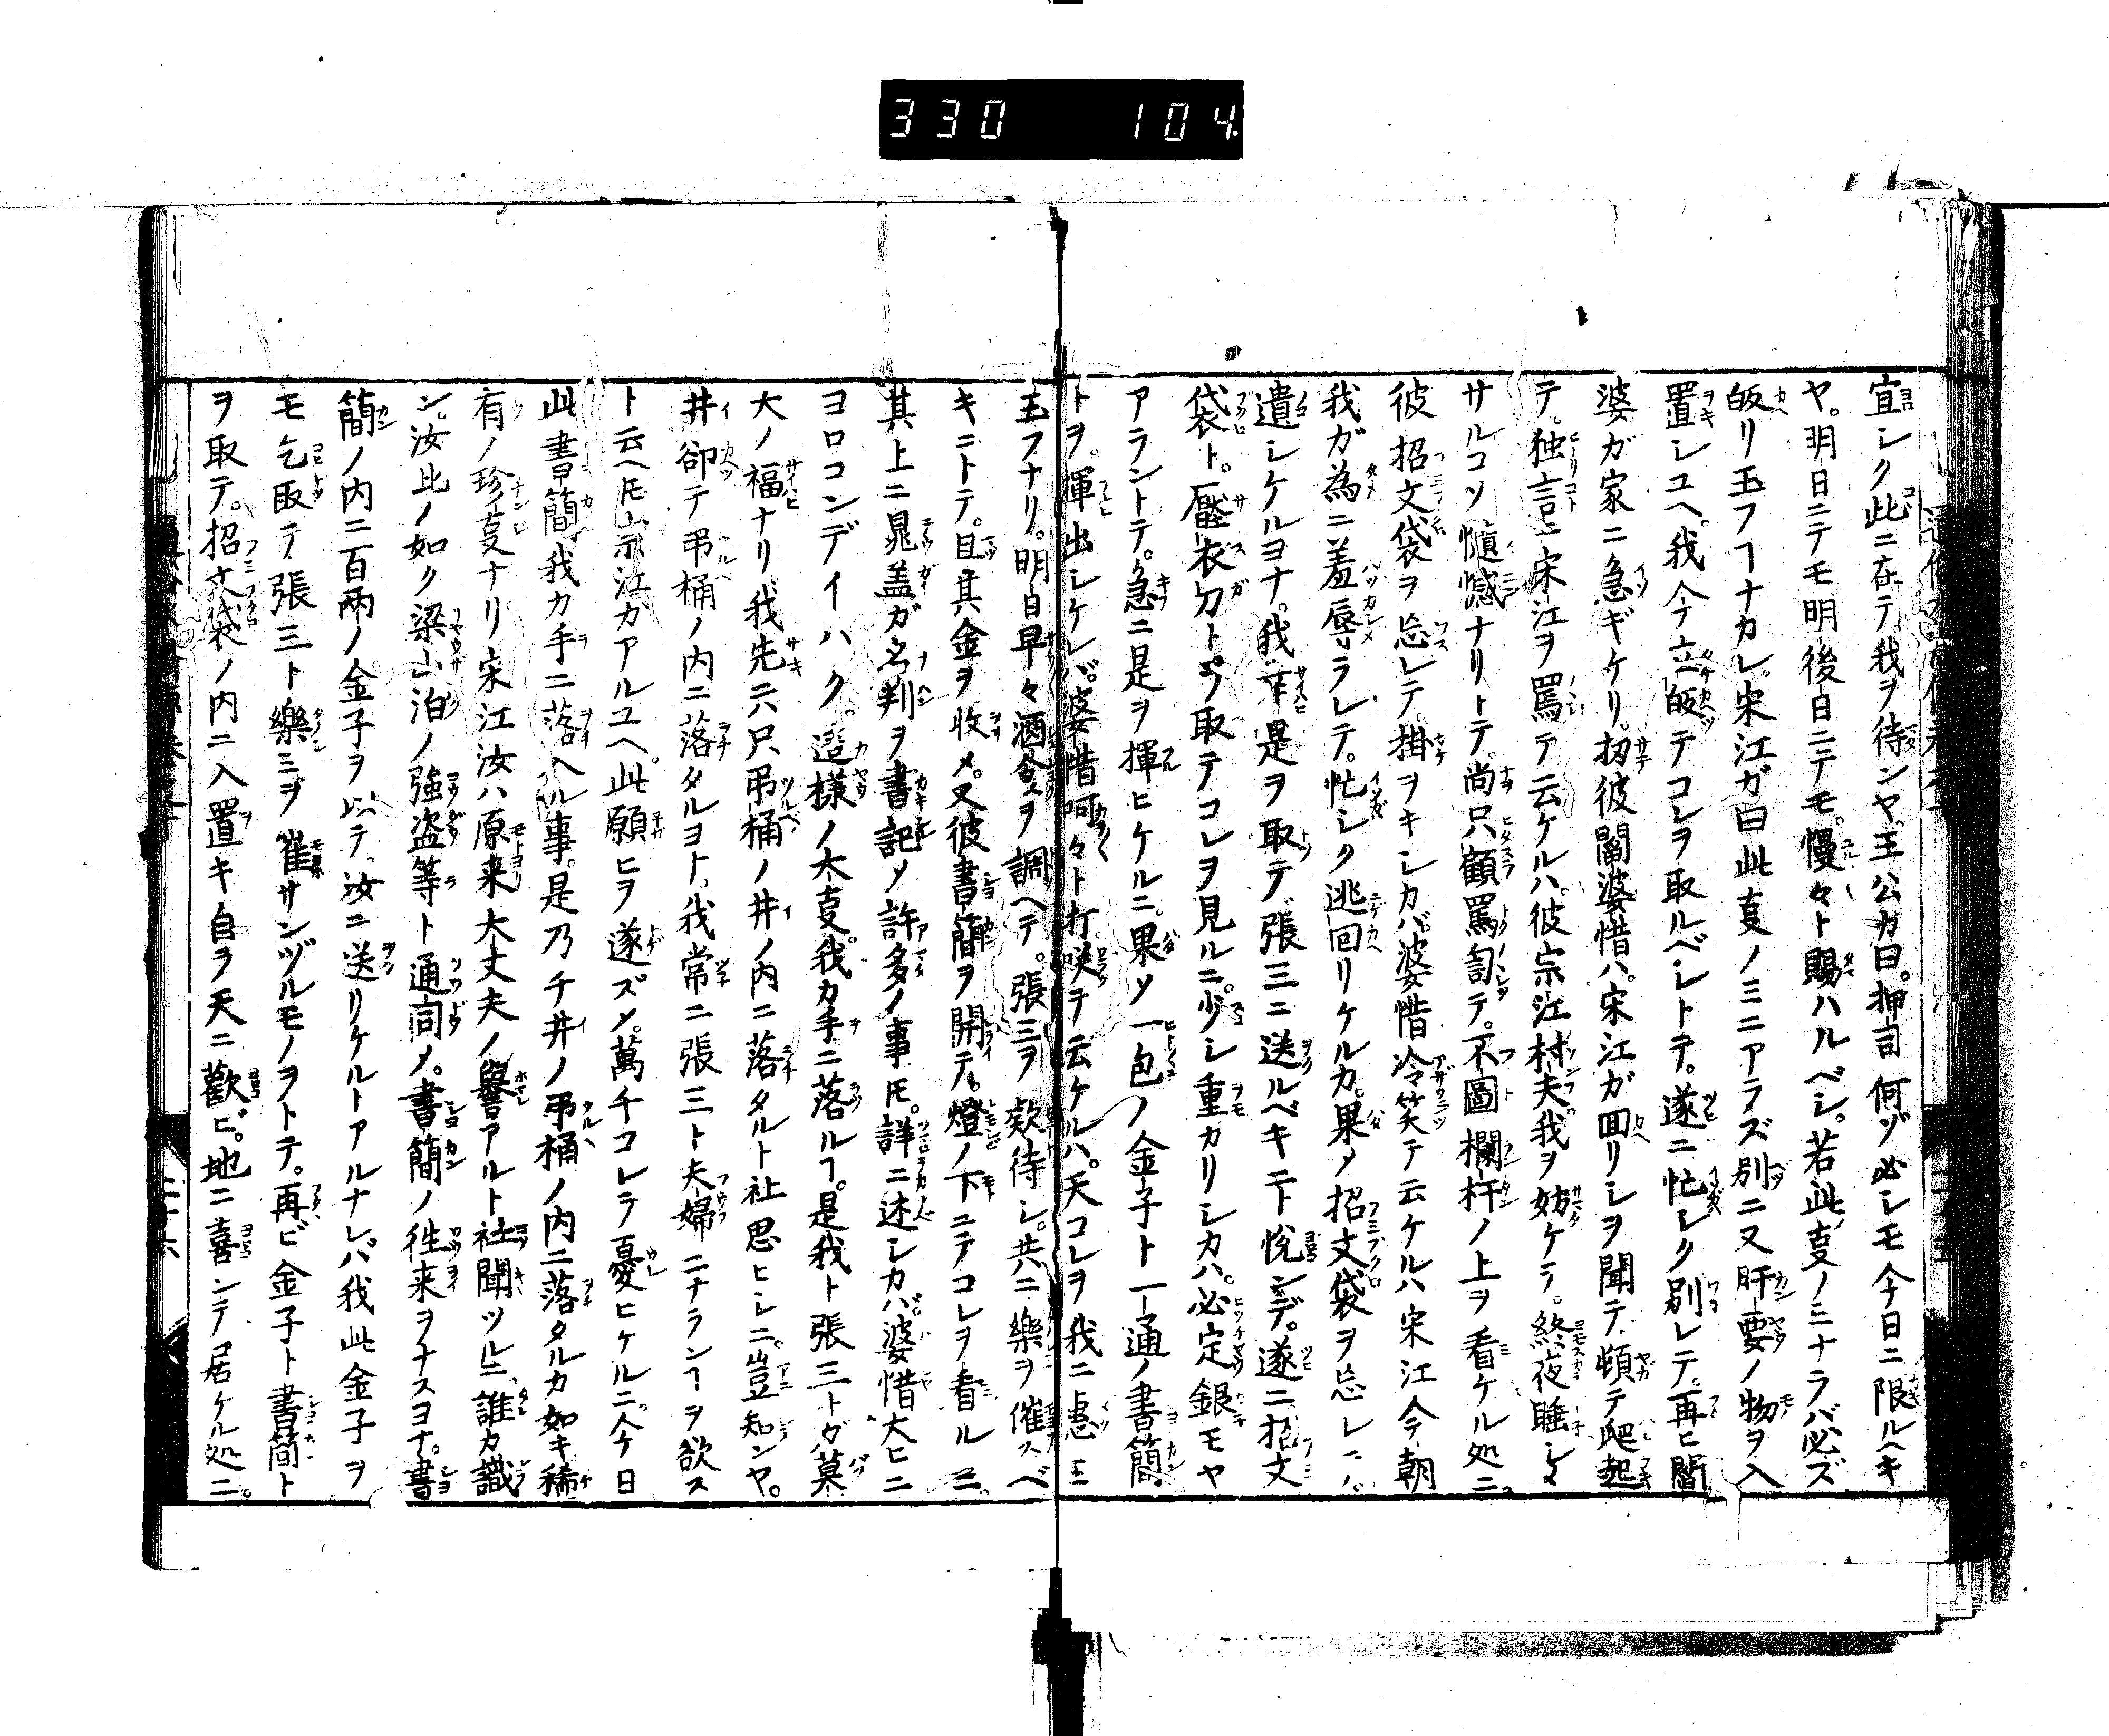 330 104.
宜シク此ニ在テ我ヲ待ンヤ王公カ曰押司何ゾ必シモ今日ニ限ルヘキ
ヤ。明日ニテモ明後日ニテモ。慢々ト賜ハルベシ。若此事ノミナラバ必ズ
皈リ玉フヿナカレ。宋江ガ曰此事ノミニアラズ別ニ又肝要ノ物ヲ入
置シユヘ。我今立皈テコレヲ取ルベシトテ。遂ニ忙シク別レテ。再ヒ閻
婆ガ家ニ急ギケリ。扨彼閻婆惜ハ。宋江ガ回リシヲ聞テ頓テ爬起
テ。独言ニ宋江ヲ罵テ云ケルハ。彼宗江村夫我ヲ妨ケテ。終夜睡シメ
サルコソ愼憾ナリトテ。尚只顧罵訇テ。不圖欄杆ノ上ヲ看ケル処ニ
彼招文袋ヲ忘レテ。掛ヲキシカバ婆惜冷笑テ云ケルハ宋江今朝
我ガ為ニ羞辱ラレテ。忙シク逃回リケルカ。果メ招文袋ヲ忘レ
遺シケルヨナ。我幸是ヲ取テ張三ニ送ルベキニト悦ンデ。遂ニ招文
袋ト。壓衣刀トヲ取テコレヲ見ルニ。少シ重カリシカハ。必定銀モヤ
アラントテ。急ニ是ヲ揮ヒケルニ。果ソ一包ノ金子ト一通ノ書簡
トヲ。揮出シケレバ。婆惜呵々ト打咲テ云ケルハ。天コレヲ我ニ惠ミ
玉フナリ。明日早々酒食ヲ調ヘテ。張三ヲ欵待シ。共ニ樂ヲ催スベ
キニトテ。且其金ヲ收メ。又彼書簡ヲ開テ。燈ノ下ニテコレヲ看ルニ。
其上ニ晁盖ガ名判ヲ書記ソ許多ノ事ヲ。詳ニ述シカバ。婆惜大ヒニ
ヨロコンデイハク。這様ノ大事。我カ手ニ落ルヿ。是我ト張三トガ莫
大ノ福ナリ我先ニ六只吊桶ノ井ノ内ニ落タルト社思ヒシニ。豈知ンヤ。
井卻テ吊桶ノ内ニ落タルヨト。我常ニ張三ト夫婦ニナランヿヲ欲ス
ト云ヘ圧宗江カアルユヘ。此願ヒヲ遂ズソ。萬千コレヲ憂ヒケルニ。今日
此書簡我カ手ニ落ヘル事。是乃チ井ノ吊桶ノ内ニ落タルカ如キ稀
有ノ珍事ナリ宋江汝ハ原来大丈夫ノ譽アルト社聞ツルニ誰カ識
ン。汝此ノ如ク梁山泊ノ強盗等ト通同メ。書簡ノ徃来ヲナスヨナ。書
簡ノ内ニ百兩ノ金子ヲ以テ。汝ニ送リケルトアルナレバ我此金子ヲ
モ乞取テ張三ト樂ミヲ催サンヅルモノヲトテ。再ビ金子ト書簡ト
ヲ取テ。招文袋ノ内ニ入置キ自ヲ天ニ歡ビ。地ニ喜ンテ居ケル処ニ。